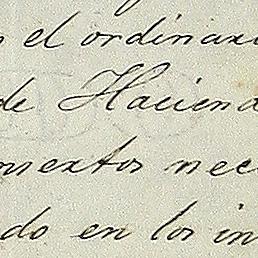 el ordinari
de Haciend
nextos nec
do en los in